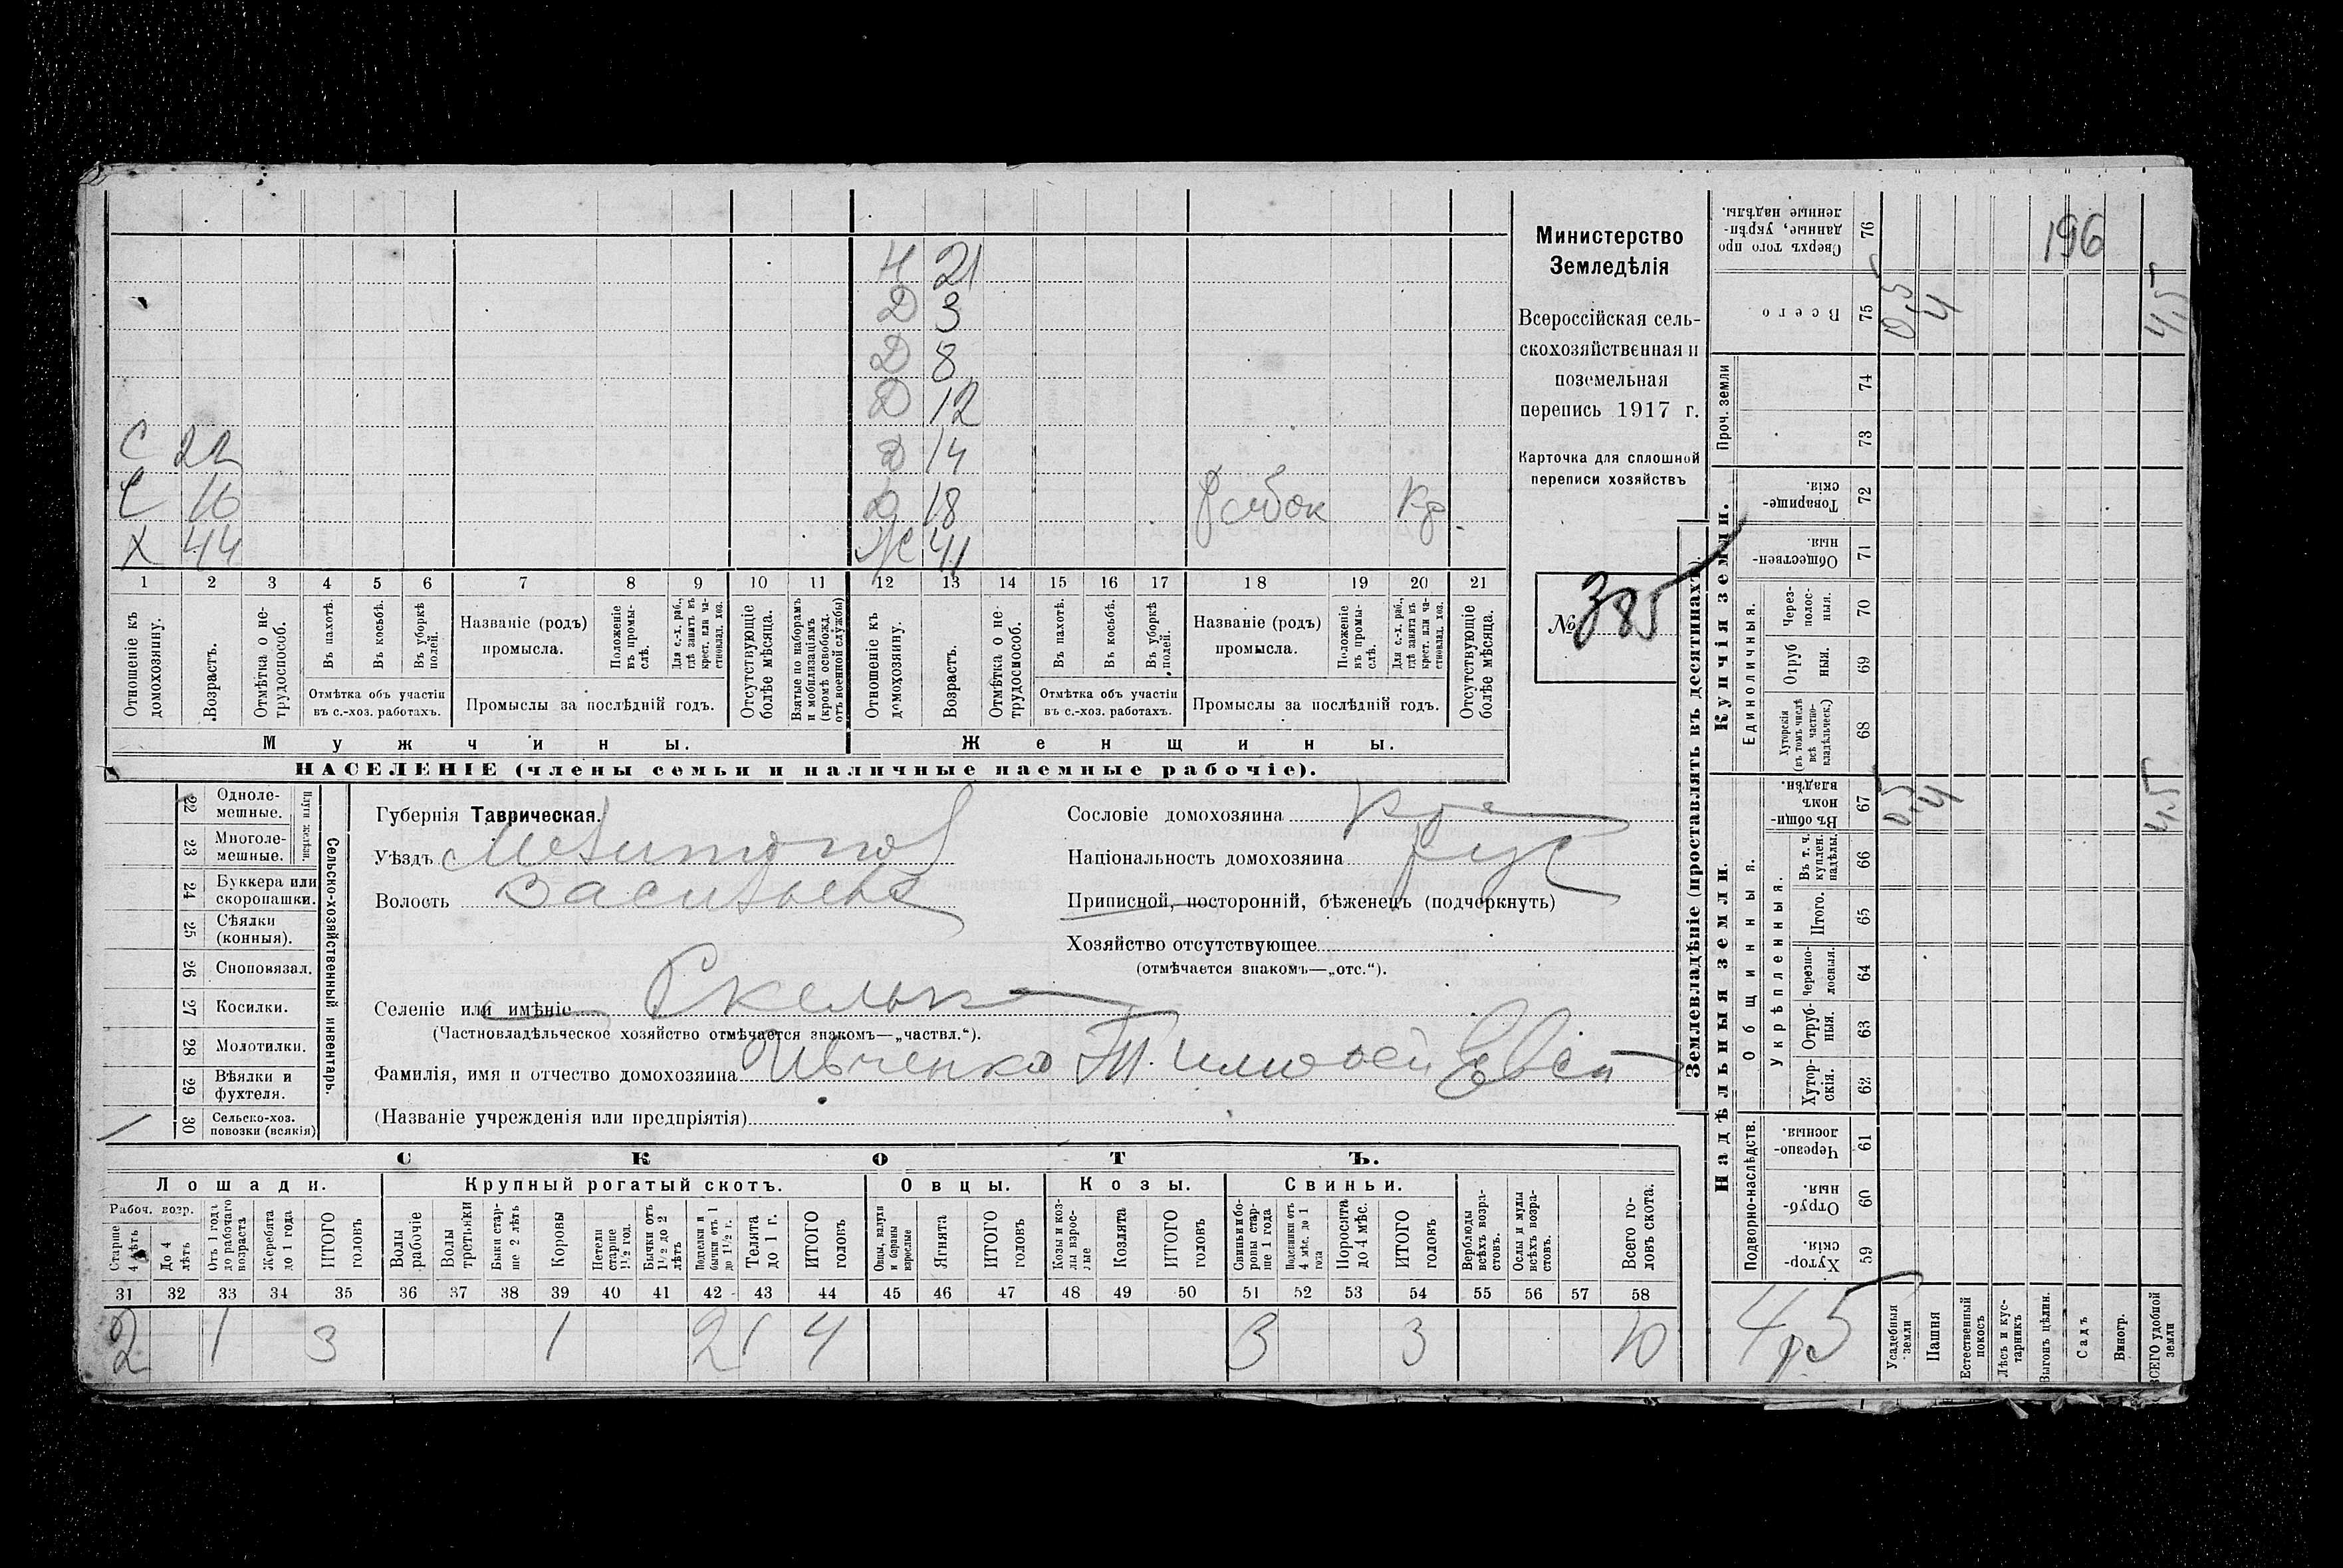 Н 21
Д 3
Д 8
Д 12
С 22 Д 14
С 16 Д 18 Кр.
Х 44 Ж 41
1 2 3 4 5 6 7 8 9 10 11 12 13 14 15 16 17 18 19 20 21
Отношеніе къ домохозяину.
Возрастъ.
Отмѣтка о нетрудоспособ.
Въ пахотѣ.
Въ косьбѣ.
Въ уборкѣ полей.
Отмѣтка объ участіи
въ с.-хоз. работахъ.
Названіе (родъ)
промысла.
Положеніе въ промыслѣ.
Для с.-х. раб., гдѣ занятъ въ крест. или частновлад. хоз.
Промыслы за послѣдній годъ.
Отсутствующіе болѣе мѣсяца.
Взятые по наборамъ и мобилизаціямъ (кромѣ освобожд. отъ военной службы)
Отношеніе къ домохозяину.
Возрастъ.
Отмѣтка о нетрудоспособ.
Въ пахотѣ.
Въ косьбѣ.
Въ уборкѣ полей.
Отмѣтка объ участіи
въ с.-хоз. работахъ.
Названіе (родъ)
промысла.
Положеніе въ промыслѣ.
Для с.-х. раб., гдѣ занята въ крест. или частновлад. хоз.
Промыслы за послѣдній годъ.
Отсутствующіе болѣе мѣсяца.
Мужчины. Женщины.
НАСЕЛЕНІЕ (члены семьи и наличные наемные рабочіе).
Министерство
Земледѣлія
Всероссійская сель-
скохозяйственная и
поземельная
перепись 1917 г.
Карточка для сплошной
переписи хозяйствъ
№ 385
22 Одноле-
мешные.
23 Многоле-
мешные.
Плуги желѣзн.
24 Буккера или
скоропашки.
25 Сѣялки
(конныя).
26 Сноповязал.
27 Косилки.
28 Молотилки.
29 Вѣялки и
фухтеля.
1 30 Сельско-хоз.
повозки (всякія)
Сельско-хозяйственный инвентарь.
Губернія Таврическая.
Уѣздъ Мелитопол
Волость Васильев
Сословіе домохозяина Кре
Національность домохозяина Рус
Приписной, посторонній, бѣженецъ (подчеркнуть)
Хозяйство отсутствующее
(отмѣчается знакомъ—„отс.“).
Селеніе или имѣніе Скелька
(Частновладѣльческое хозяйство отмѣчается знакомъ—„частвл.“).
Фамилія, имя и отчество домохозяина Ивченко Тимофей Евсѣ
(Названіе учрежденія или предпріятія)
СКОТЪ.
Лошади. Крупный рогатый скотъ. Овцы. Козы. Свиньи.
Рабоч. возр.
Старше 4 лѣтъ
До 4 лѣтъ
Отъ 1 года до рабочаго возраста
Жеребята до 1 года
ИТОГО головъ
Волы рабочіе
Волы третьяки
Быки старше 2 лѣтъ
Коровы
Нетели старше 1½ год.
Бычки отъ 1½ до 2 лѣтъ
Подтелки и бычки отъ 1 до 1½ г.
Телята до 1 г.
ИТОГО головъ
Овцы, валухи и бараны взрослые
Ягнята
ИТОГО головъ
Козы и козлы взрослые
Козлята
ИТОГО головъ
Свиньи и боровы старше 1 года
Подсвинки отъ 4 мѣс. до 1 года
Поросята до 4 мѣс.
ИТОГО головъ
Верблюды всѣхъ возрастовъ.
Ослы и мулы всѣхъ возрастовъ.
Всего головъ скота.
31 32 33 34 35 36 37 38 39 40 41 42 43 44 45 46 47 48 49 50 51 52 53 54 55 56 57 58
2 1 3 1 2 1 4 3 3 10
Землевладѣніе (проставлять въ десятинахъ)
Купчія земли.
Надѣльныя земли.
Сверхъ того проданные, укрѣпленные надѣлы. 76
196
Всего 75 0,5 4 4,5
Проч. земли 74
73
Товарищескія. 72
Общественныя. 71
Единоличныя.
Черезполосныя. 70
Отрубныя. 69
Хуторскія (въ томъ числѣ всѣ частновладѣльческ.) 68
Въ общинномъ владѣн. 67 0,5 4 4,5
Общинныя.
Укрѣпленныя.
Въ т. ч. куплен. надѣлы. 66
Итого. 65
Черезполосныя. 64
Отрубныя. 63
Хуторскія. 62
Подворно-наслѣдств.
Черезполосныя. 61
Отрубныя. 60
Хуторскія. 59
4,5
Усадебныя земли
Пашня
Естественный покосъ
Лѣсъ и кустарникъ
Выгонъ цѣлин.
Садъ
Виногр.
ВСЕГО удобной земли